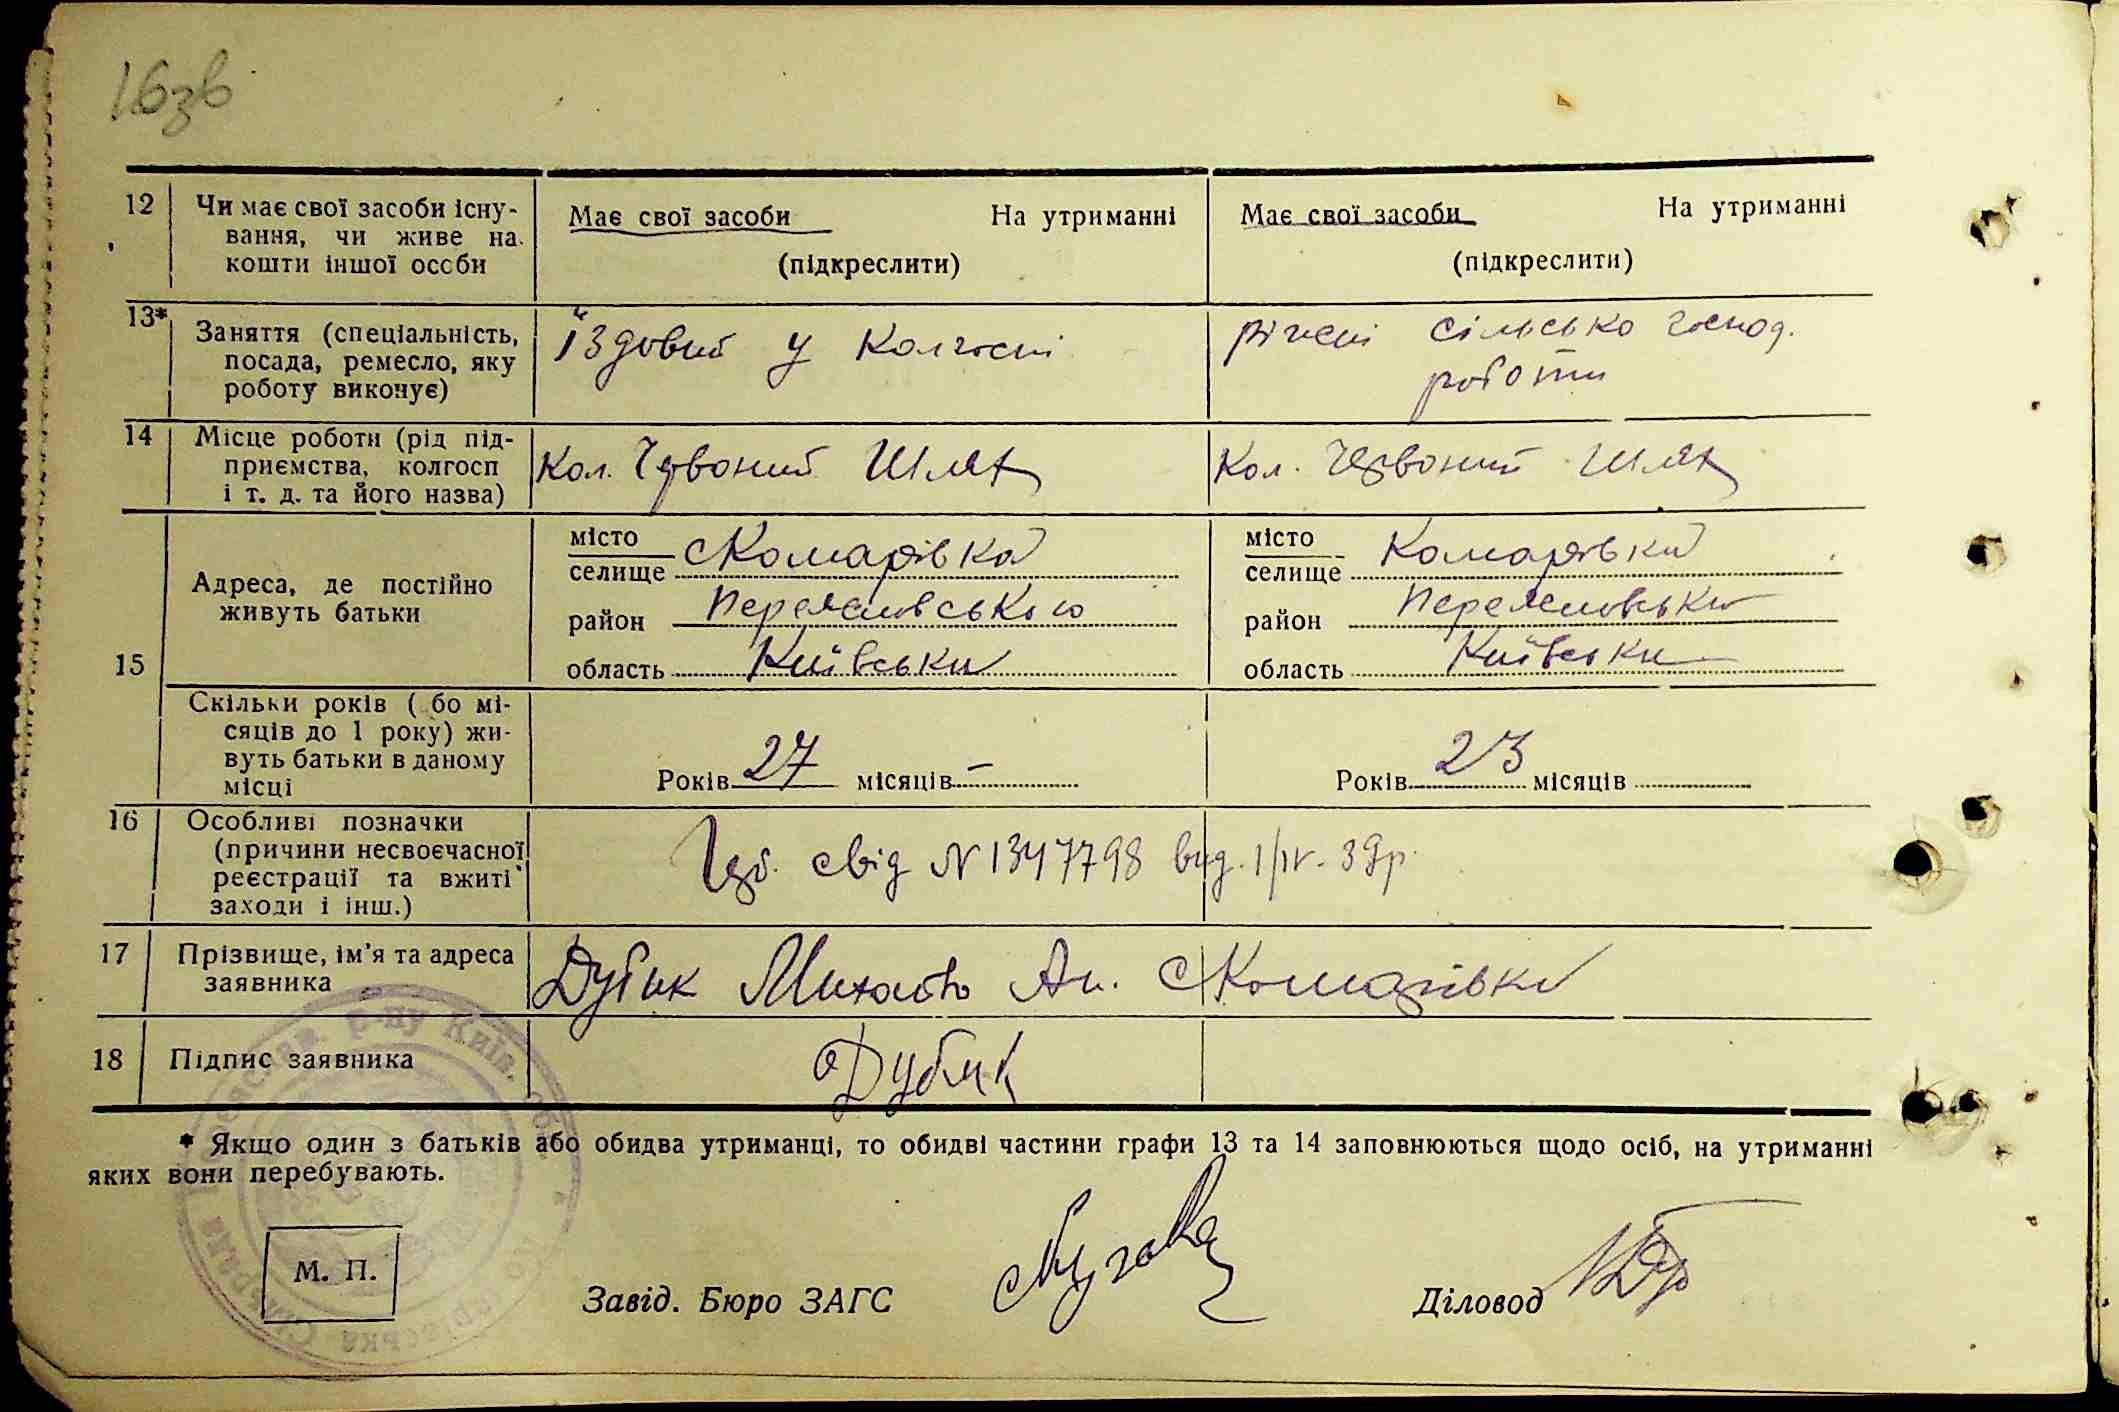 16зв
12 Чи має свої засоби існу-
вання, чи живе на
кошти іншої особи
Має свої засоби На утриманні
(підкреслити)
Має свої засоби На утриманні
(підкреслити)
13* Заняття (спеціальність,
посада, ремесло, яку
роботу виконує)
їздовий у колгоспі
ріжні сільсько господ.
роботи
14 Місце роботи (рід під-
приємства, колгосп
і т. д. та його назва)
Кол. Червоний Шлях
Кол. Червоний Шлях
15 Адреса, де постійно
живуть батьки
місто
селище с Комарівка
район
область Київська
місто
селище Комарівка
район
область Київська
Скільки років ( бо мі-
сяців до 1 року) жи-
вуть батьки в даному
місці
Років 27 місяців –
Років 23 місяців
16 Особливі позначки
(причини несвоєчасної
реєстрації та вжиті
заходи і інш.)
свід N 1347798 вид. 1/IV - 39р.
17 Прізвище, ім'я та адреса
заявника
Дубик Михайло Ан. с Комарівка
18 Підпис заявника
Дубик
* Якщо один з батьків або обидва утриманці, то обидві частини графи 13 та 14 заповнюються щодо осіб, на утриманні
яких вони перебувають.
М. П.
Завід. Бюро ЗАГС
Діловод